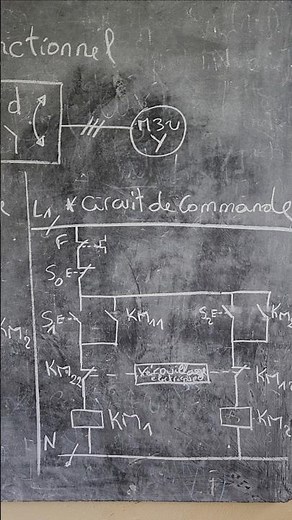 nctionnel
d
M3~
Y
Y
L1 * Circuit de Commande
F
S0 E
S1 E KM11 S2 E
KM2
KM22 Verouillage KM12
électrique
KM1 KM2
N